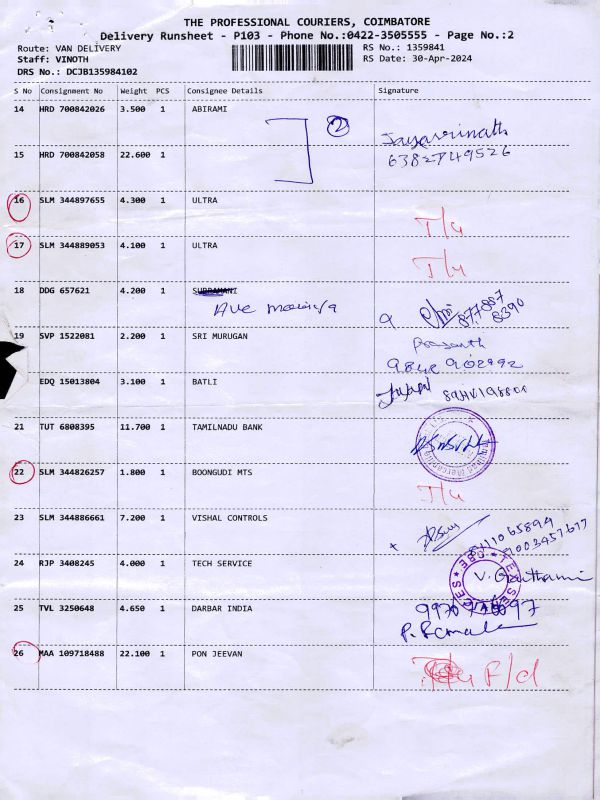 THE PROFESSIONAL COURIERS, COIMBATORE
Delivery Runsheet - P103 - Phone No.:0422-3505555 - Page No.:2
Route: VAN DELIVERY
RS No.: 1359841
Staff: VINOTH
RS Date: 30-Apr-2024
DRS No.: DCJB135984102
S No Consignment No Weight PCS Consignee Details Signature
14 HRD 700842026 3.500 1 ABIRAMI
2
Jayasrinath
15 HRD 700842058 22.600 1
6382749526
16 SLM 344897655 4.300 1 ULTRA
T/u
17 SLM 344889053 4.100 1 ULTRA
T/u
18 DDG 657621 4.200 1 SUBRAMANI
Ave
877887
8390
19 SVP 1522081 2.200 1 SRI MURUGAN
Prasanth
EDQ 15013804 3.100 1 BATLI
21 TUT 6808395 11.700 1 TAMILNADU BANK
22 SLM 344826257 1.800 1 BOONGUDI MTS
T/u
23 SLM 344886661 7.200 1 VISHAL CONTROLS
9003457677
24 RJP 3408245 4.000 1 TECH SERVICE
V. Gowthami
25 TVL 3250648 4.650 1 DARBAR INDIA
26 MAA 109718488 22.100 1 PON JEEVAN
F/d